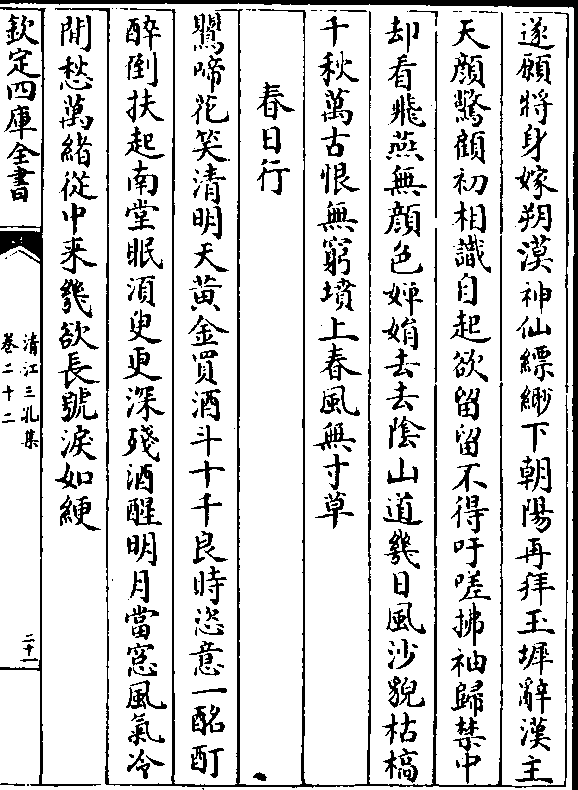 遂願將身嫁朔漠神仙縹緲下朝陽再拜玉墀辭漢主
天顔驚顧初相識自起欲留留不得吁嗟拂袖歸禁中
却看飛燕無顔色嬋娟去去陰山道幾日風沙貌枯槁
千秋萬古恨無窮墳上春風無寸草
春日行
鸎啼花笑清明天黄金買酒斗十千良時恣意一酩酊
醉倒扶起南堂眠須臾更深殘酒醒明月當窓風氣冷
閒愁萬緒從中来幾欲長號淚如綆
欽定四庫全書
清江三孔集
卷二十二
二十一